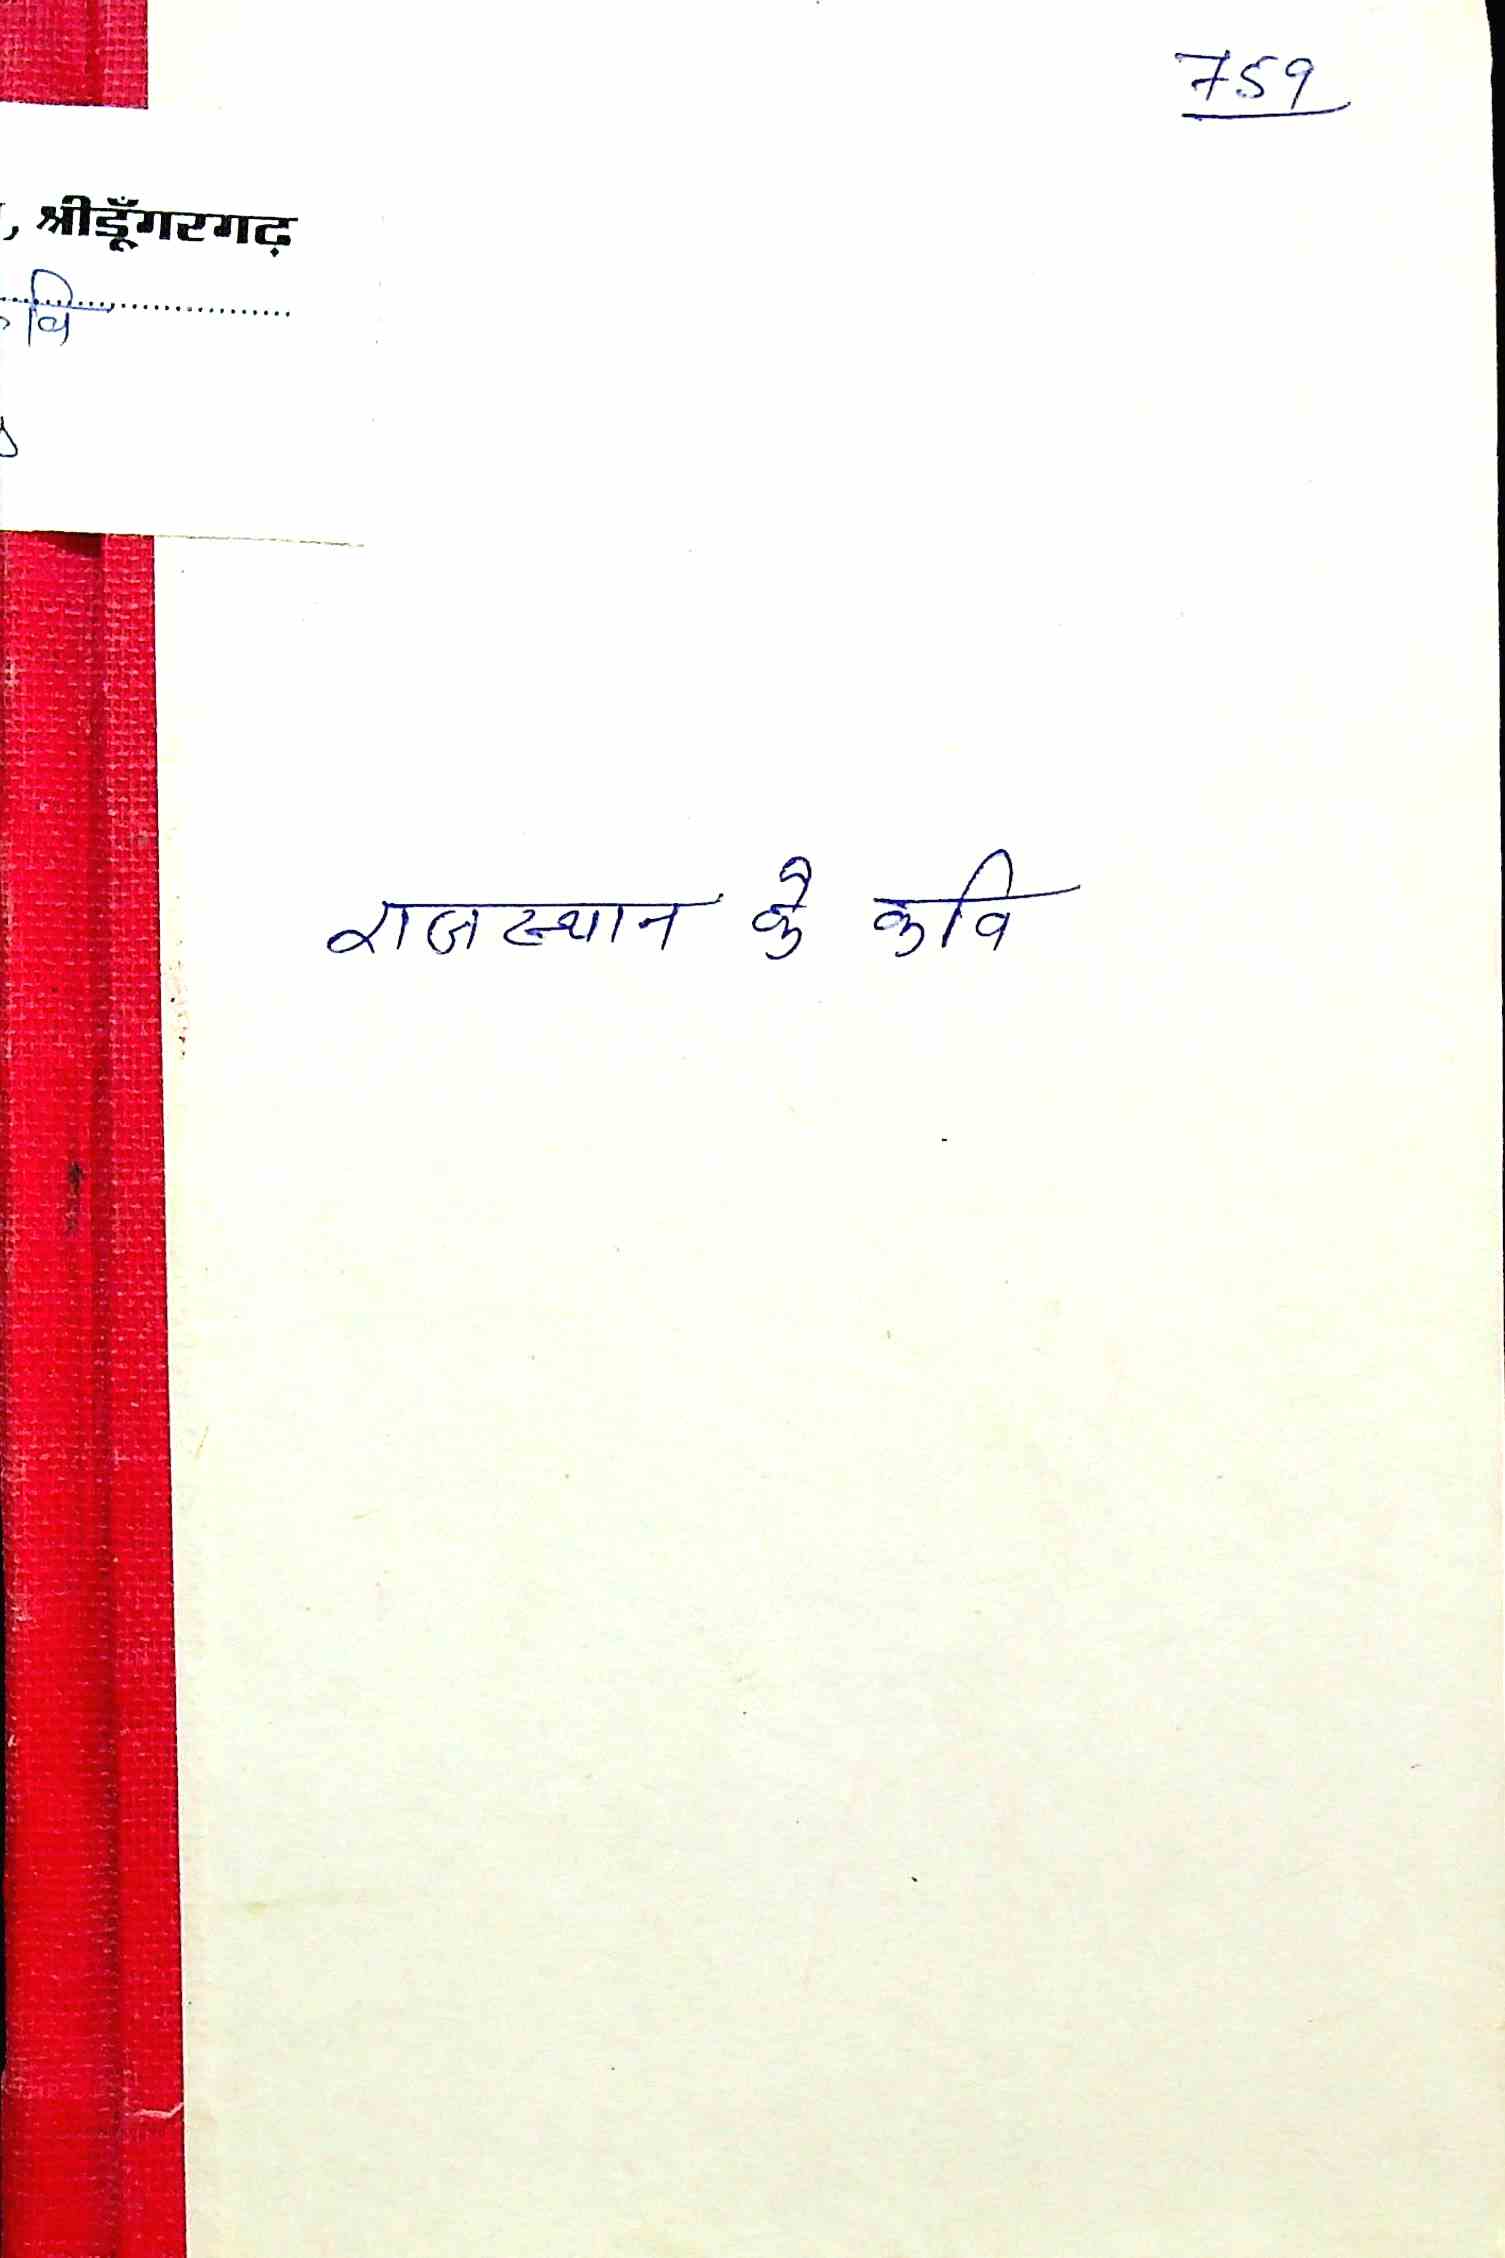 759
, श्रीडूँगरगढ़
कवि
राजस्थान के कवि